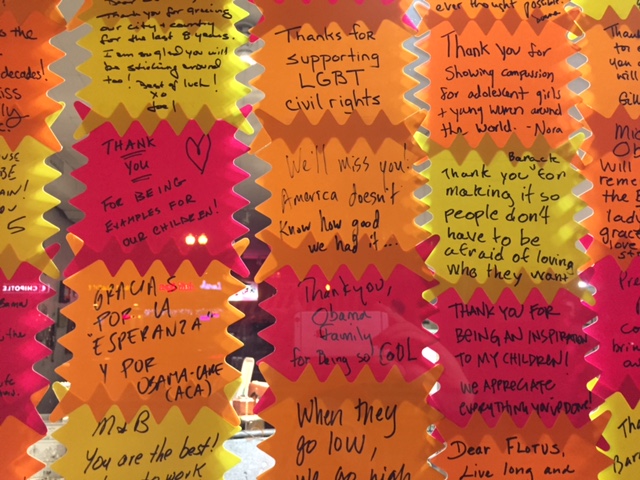 Thank you for gracing
our city & country
for the last 8 years.
I am so glad you will
be sticking around
too! Best of luck!
xo
Joe!
Thanks for
supporting
LGBT
civil rights
ever thought possible.
Thank you for
showing compassion
for adolescent girls
+ young women around
the world. - Nora
decades!
THANK
YOU
FOR BEING
EXAMPLES FOR
OUR CHILDREN!
We'll miss you!
America doesn't
know how good
we had it...
Barack
Thank you for
making it so
people don't
have to be
afraid of loving
who they want
will
reme
the
lad
CHIPOTLE
GRACIAS
POR LA
ESPERANZA
Y POR
OBAMA-CARE
(ACA)
Thank you,
Obama
family
for being so COOL
THANK YOU FOR
BEING AN INSPIRATION
TO MY CHILDREN!
WE APPRECIATE
EVERYTHING YOU'VE DONE!
M & B
You are the best!
to work
When they
go low,
we go high
Dear FLOTUS,
Live long and